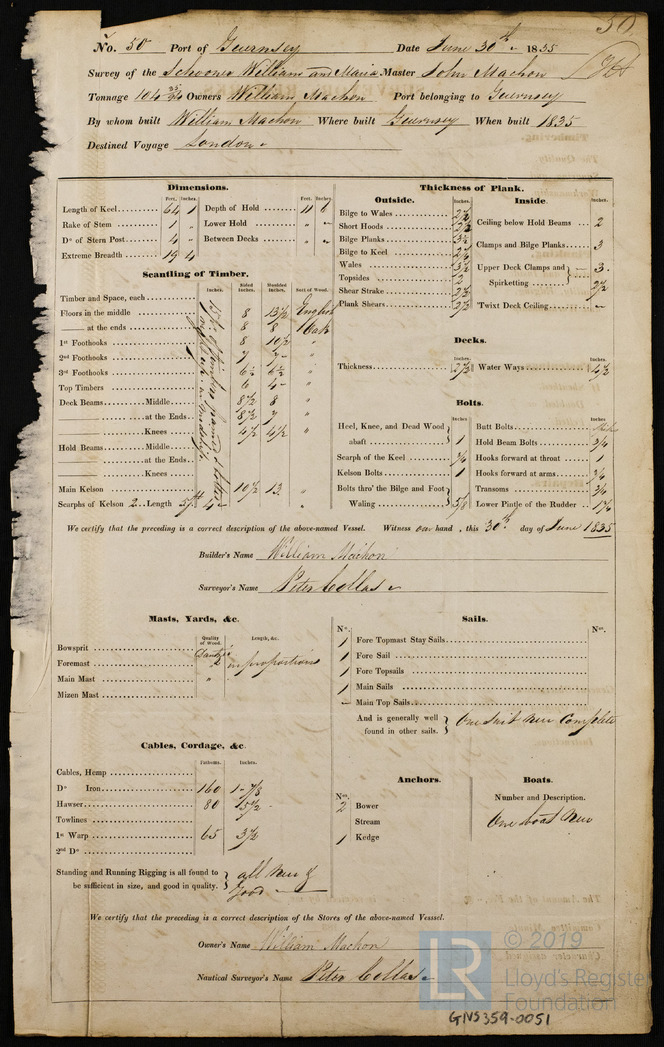 50.
No. 50 Port of Guernsey Date June 30th 1835
Survey of the Schooner William and Maria Master John Machon
Tonnage 104 Owners William Machon Port belonging to Guernsey
By whom built William Machon Where built Guernsey When built 1835
Destined Voyage London
Dimensions.
Feet. Inches. Feet. Inches.
Length of Keel 64 1 Depth of Hold 11 6
Rake of Stem 1 „ Lower Hold „ „
Do of Stern Post 4 „ Between Decks „ „
Extreme Breadth 19 4
Scantling of Timber.
Inches. Sided Inches. Moulded Inches. Sort of Wood.
Timber and Space, each
Floors in the middle 8 13½ English
at the ends 8 8 Oak
1st Foothooks 8 10½ „
2nd Foothooks 7 7 „
3rd Foothooks 6½ 6½ „
Top Timbers 6 4 „
Deck Beams Middle 8½ 8 „
at the Ends 8½ 7 „
Knees 4½ 4½ „
Hold Beams Middle
at the Ends
Knees
Main Kelson 10½ 13 „
Scarphs of Kelson 2 Length 5ft 4
Thickness of Plank.
Outside. Inches.
Bilge to Wales 2½
Short Hoods 2½
Bilge Planks 3½
Bilge to Keel 2½
Wales 3½
Topsides 2½
Shear Strake 2½
Plank Shears 2½
Inside Inches.
Ceiling below Hold Beams 2
Clamps and Bilge Planks 3
Upper Deck Clamps and 3
Spirketting 2½
'Twixt Deck Ceiling
Decks.
Inches. Inches.
Thickness 2½ Water Ways 4½
Bolts.
Inches Inches
Heel, Knee, and Dead Wood abaft 1
Scarph of the Keel ¾
Kelson Bolts 1
Bolts thro' the Bilge and Foot Waling 5/8
Butt Bolts
Hold Beam Bolts ¾
Hooks forward at throat 1
Hooks forward at arms ¾
Transoms ¾
Lower Pintle of the Rudder 1¾
We certify that the preceding is a correct description of the above-named Vessel. Witness our hand, this 30th day of June 1835
Builder's Name William Machon
Surveyor's Name Peter Collas
Masts, Yards, &c.
Quality of Wood. Length, &c.
Bowsprit
Foremast in proportions
Main Mast „
Mizen Mast
Sails.
No. No.
1 Fore Topmast Stay Sails
1 Fore Sail
1 Fore Topsails
1 Main Sails
Main Top Sails
And is generally well found in other sails. One Suit New Complete
Cables, Cordage, &c.
Fathoms. Inches.
Cables, Hemp
Do Iron 160 1-7/8
Hawser 80 5½
Towlines
1st Warp 65 3½
2nd Do
Standing and Running Rigging is all found to be sufficient in size, and good in quality. all New & Good
Anchors.
No.
2 Bower
Stream
1 Kedge
Boats.
Number and Description.
One boat New
We certify that the preceding is a correct description of the Stores of the above-named Vesssel.
Owner's Name William Machon
Nautical Surveyor's Name Peter Collas
LR © 2019
Lloyd's Register
Foundation
GNS359-0051